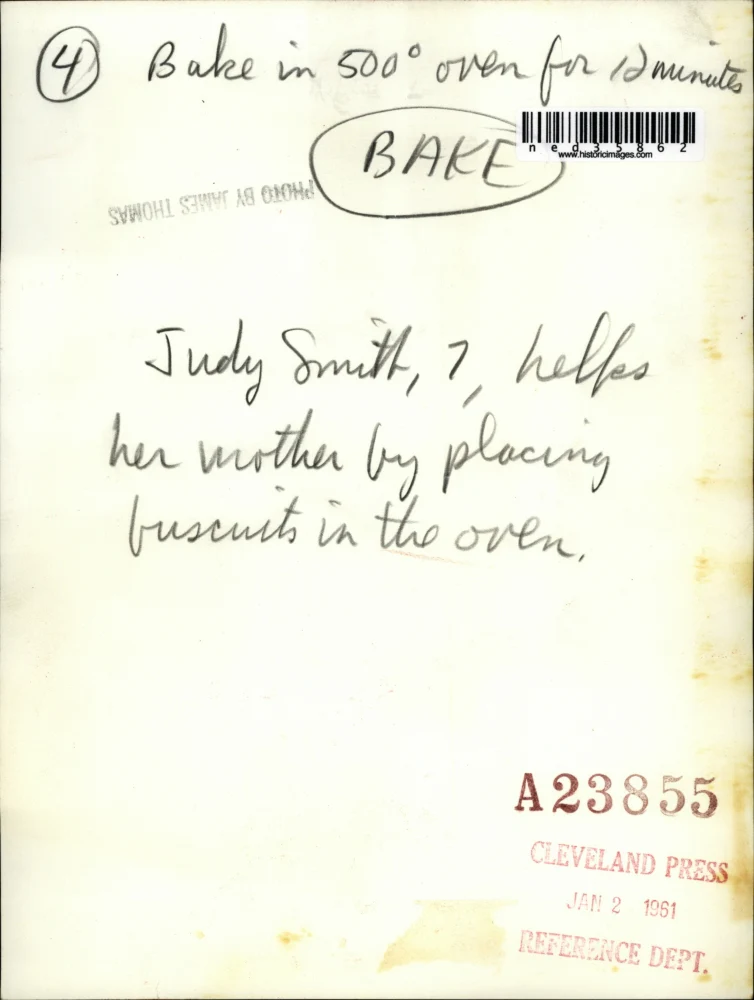 4 Bake in 500° oven for 12 minutes
BAKE
ned35862
www.historicimages.com
PHOTO BY JAMES THOMAS
Judy Smith, 7, helps
her mother by placing
buscuits in the oven.
A23855
CLEVELAND PRESS
JAN 2 1961
REFERENCE DEPT.